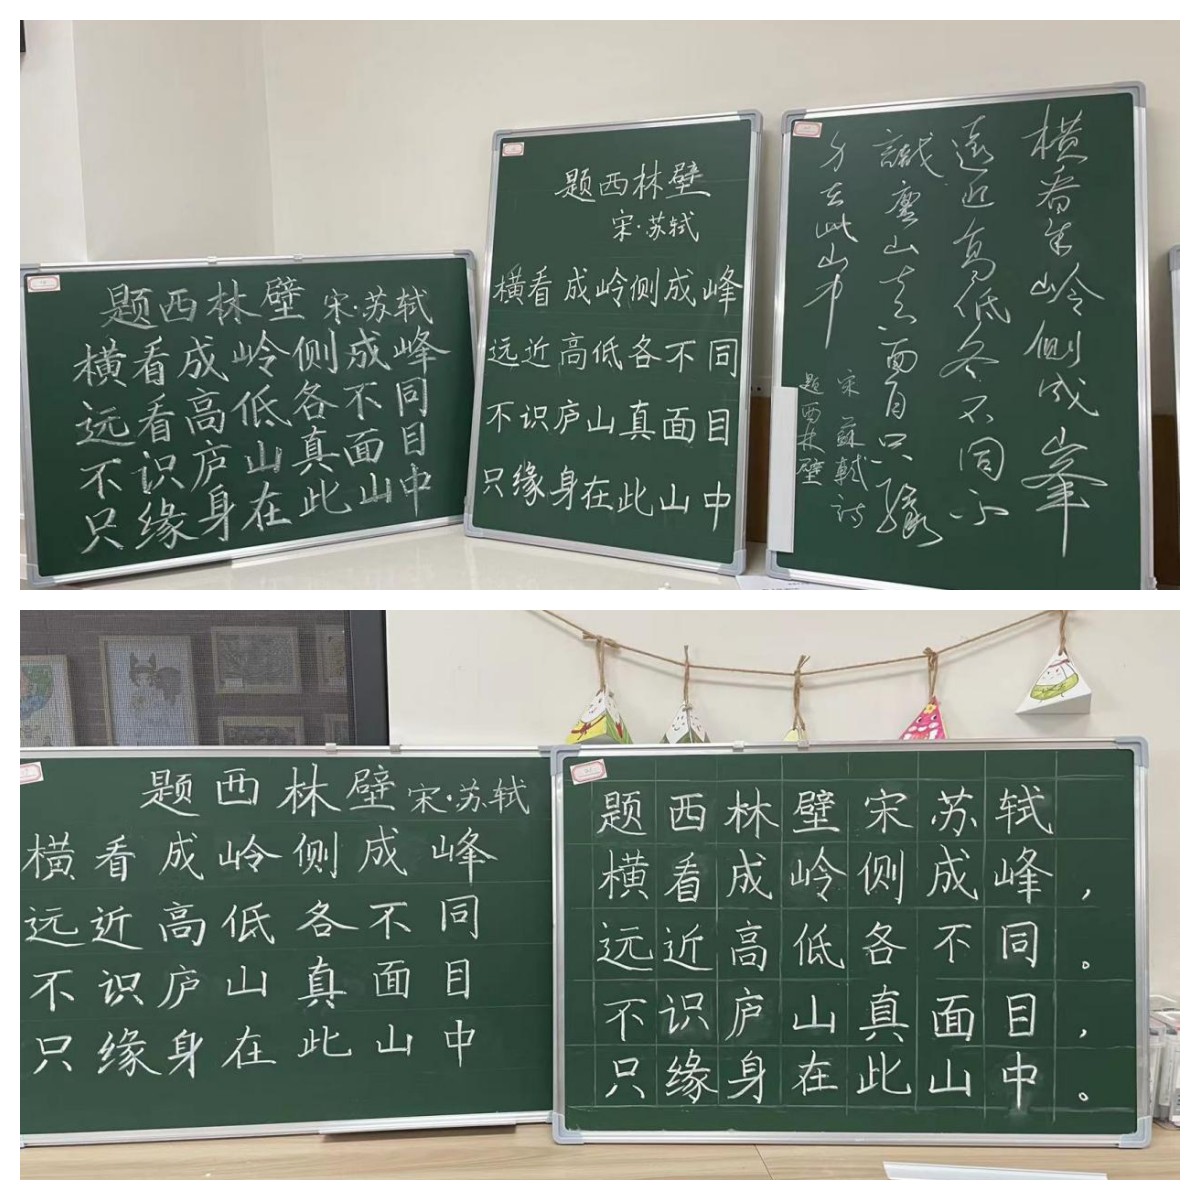 题西林壁 宋·苏轼
横看成岭侧成峰
远看高低各不同
不识庐山真面目
只缘身在此山中
题西林壁
宋·苏轼
横看成岭侧成峰
远近高低各不同
不识庐山真面目
只缘身在此山中
横看成岭侧成峯
遠近高低各不同不
識廬山真面目只緣
身在此山中
宋 蘇軾詩
题西林壁
题西林壁 宋·苏轼
横看成岭侧成峰
远近高低各不同
不识庐山真面目
只缘身在此山中
题西林壁宋苏轼
横看成岭侧成峰，
远近高低各不同。
不识庐山真面目，
只缘身在此山中。